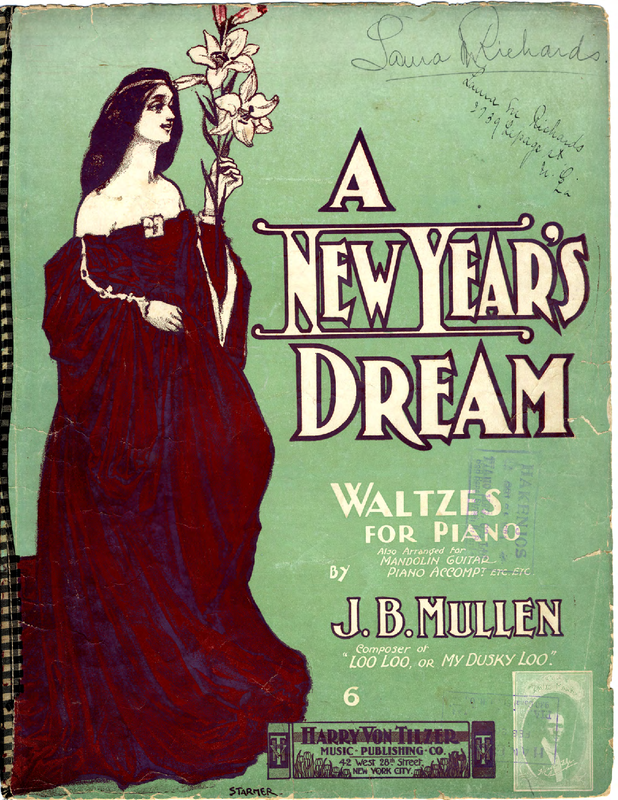 Laura M Richards.
Laura M. Richards
A
NEW YEAR'S
DREAM
WALTZES
FOR PIANO
Also Arranged for
MANDOLIN GUITAR
PIANO ACCOMPT. ETC. ETC
BY
J. B. MULLEN
Composer of
"LOO LOO, OR MY DUSKY LOO."
6
HARRY VON TILZER
MUSIC · PUBLISHING · CO.
42 West 28th Street,
NEW YORK CITY.
STARMER
HAKENJOS